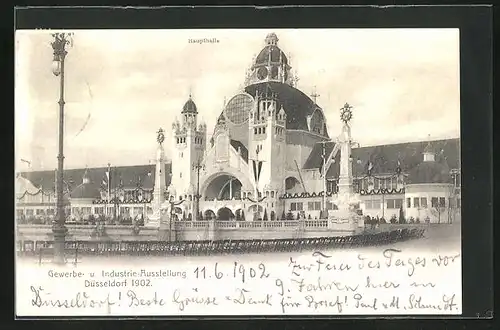 Haupthalle
Gewerbe- u. Industrie-Ausstellung 11.6.1902 Zur Feier des Tages vor
Düsseldorf 1902. 9 Jahren hier in
Düsseldorf! Beste Grüsse & Dank für Brief! Paul u. M. Schmidt.